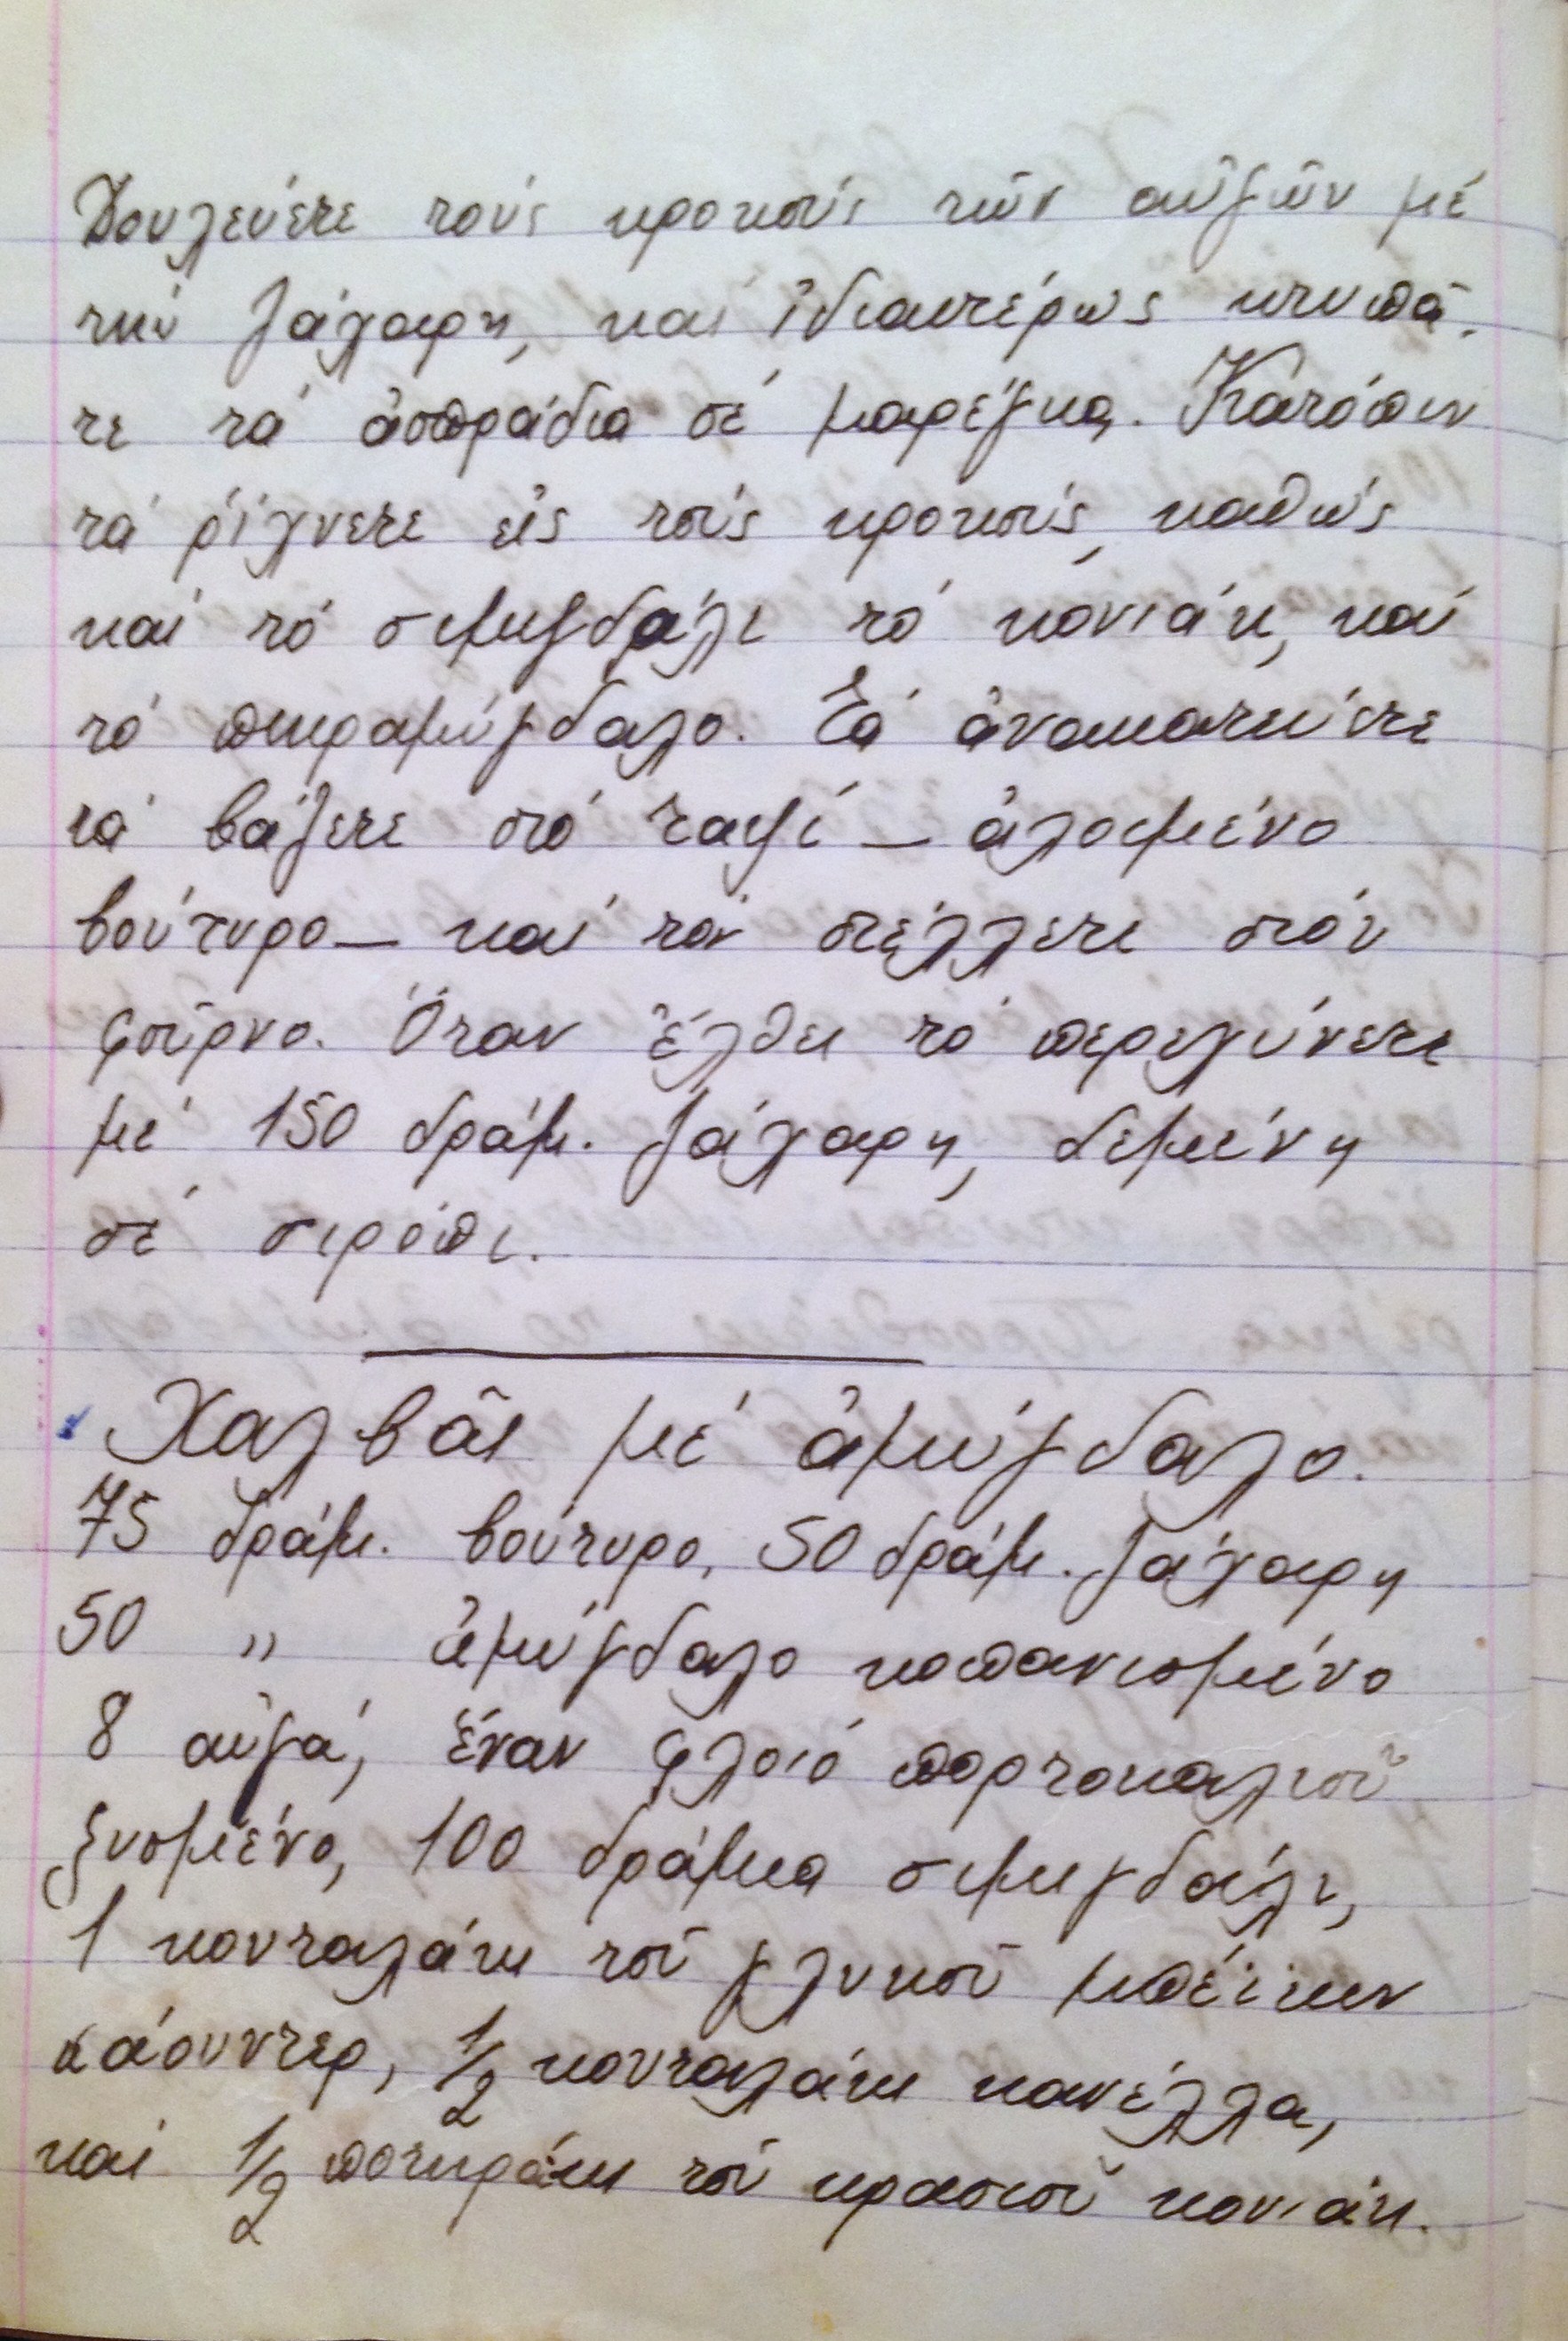 Δουλεύετε τούς κροκούς τῶν αὐγῶν μέ
τήν ζάχαρη, καί ἰδιαιτέρως κτυπᾶ-
τε τά ἀσπράδια σέ μαρέγκα. Κατόπιν
τά ρίχνετε εἰς τούς κροκούς, καθώς
καί τό σιμιγδάλι τό κονιάκ, καί
τό πικραμύγδαλο. Τά ἀνακατεύετε
τά βάζετε στό ταψί — ἀλοιμένο
βούτυρο — καί τόν στέλλετε στόν
φοῦρνο. Ὅταν ἔλθει τό περιχύνετε
μέ 150 δράμ. ζάχαρη, δεμένη
σέ σιρόπι.
Χαλβᾶς μέ ἀμύγδαλο.
75 δράμ. βούτυρο, 50 δράμ. ζάχαρη
50 〃 ἀμύγδαλο κοπανισμένο
8 αὐγά, ἕναν φλοιό πορτοκαλιοῦ
ξυσμένο, 100 δράμια σιμιγδάλι,
1 κουταλάκι τοῦ γλυκοῦ μπέϊκιν
πάουντερ, 1/2 κουταλάκι κανέλλα,
καί 1/2 ποτηράκι τοῦ κρασιοῦ κονιάκ.